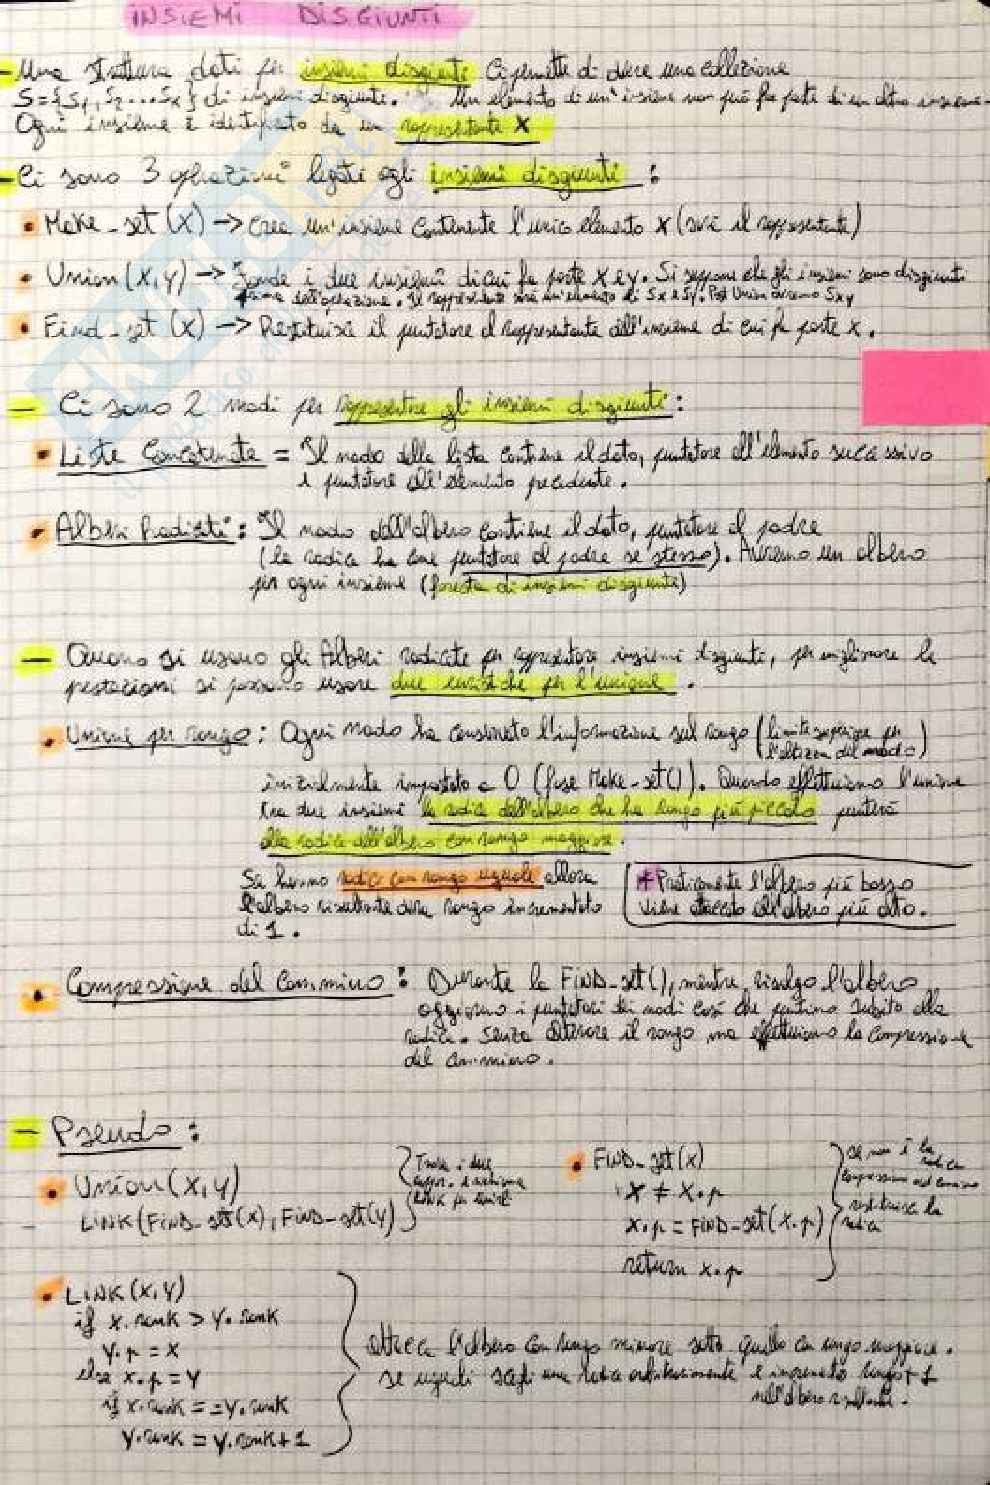 INSIEMI DISGIUNTI
- Una struttura dati per insiemi disgiunti ci permette di avere una collezione
S = {S1, S2 ... Sk} di insiemi disgiunti. Un elemento di un insieme non può far parte di un altro insieme.
Ogni insieme è identificato da un rappresentante X
- Ci sono 3 operazioni legate agli insiemi disgiunti :
• Make-set (X) → crea un'insieme contenente l'unico elemento X (sarà il rappresentante)
• Union (X,Y) → fonde i due insiemi di cui fa parte X e Y. Si suppone che gli insiemi sono disgiunti
prima dell'operazione. Il rappresentante sarà un'elemento di Sx e Sy. Post Union avremo Sxy
• Find-set (X) → Restituisce il puntatore al rappresentante dell'insieme di cui fa parte x.
- Ci sono 2 modi per rappresentare gli insiemi disgiunti :
• Liste Concatenate = Il nodo della lista contiene il dato, puntatore all'elemento successivo
e puntatore all'elemento precedente.
• Alberi Radicati : Il nodo dell'albero contiene il dato, puntatore al padre
(la radice ha come puntatore al padre se stesso). Avremo un albero
per ogni insieme (foresta di insiemi disgiunti)
- Quando si usano gli Alberi radicati per rappresentare insiemi disgiunti, per migliorare le
prestazioni si possono usare due euristiche per l'unione .
• Unione per rango : Ogni nodo ha l'informazione sul rango (limite superiore per
l'altezza del nodo)
inizialmente impostato a 0 (fase Make-set()). Quando effettuiamo l'unione
tra due insiemi la radice dell'albero che ha rango più piccolo punterà
alla radice dell'albero con rango maggiore.
Se hanno radici con rango uguale allora
l'albero risultante avrà rango incrementato
di 1 .
* Praticamente l'albero più basso
viene attaccato all'albero più alto .
• Compressione del Cammino : Durante la FIND-set(), mentre risalgo l'albero
aggiorno i puntatori dei nodi così che puntino subito alla
radice. Senza alterare il rango ma effettuiamo la compressione
del cammino .
- Pseudo :
• Union (X,Y)
LINK (FIND-set(x), FIND-set(y))
Trova i due
rappr. e richiama
LINK per unirli
• FIND-set (X)
X ≠ X.p
x.p = FIND-set(x.p)
return x.p
se non è la
radice
compressione del cammino
restituisce la
radice
• LINK (X,Y)
if x.rank > y.rank
y.p = x
else x.p = y
if x.rank == y.rank
y.rank = y.rank + 1
attacca l'albero con rango minore sotto quello con rango maggiore.
se uguali scegli una radice arbitrariamente e incremento rango + 1
nell'albero risultante.